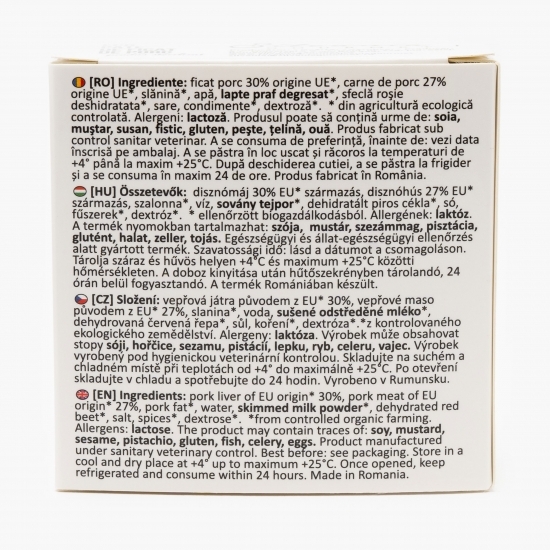 [RO] Ingrediente: ficat porc 30% origine UE*, carne de porc 27%
origine UE*, slănină*, apă, lapte praf degresat*, sfeclă roșie
deshidratata*, sare, condimente*, dextroză*. * din agricultură ecologică
controlată. Alergeni: lactoză. Produsul poate să conțină urme de: soia,
muștar, susan, fistic, gluten, pește, țelină, ouă. Produs fabricat sub
control sanitar veterinar. A se consuma de preferință, inainte de: vezi data
înscrisă pe ambalaj. A se păstra în loc uscat și răcoros la temperaturi de
+4° până la maxim +25°C. După deschiderea cutiei, a se păstra la frigider
și a se consuma în maxim 24 de ore. Produs fabricat în România.
[HU] Összetevők: disznómáj 30% EU* származás, disznóhús 27% EU*
származás, szalonna*, víz, sovány tejpor*, dehidratált piros cékla*, só,
fűszerek*, dextróz*. * ellenőrzött biogazdálkodásból. Allergének: laktóz.
A termék nyomokban tartalmazhat: szója, mustár, szezámmag, pisztácia,
glutént, halat, zeller, tojás. Egészségügyi és állat-egészségügyi ellenőrzés
alatt gyártott termék. Szavatossági idő: lásd a dátumot a csomagoláson.
Tárolja száraz és hűvös helyen +4°C és maximum +25°C közötti
hőmérsékleten. A doboz kinyitása után hűtőszekrényben tárolandó, 24
órán belül fogyasztandó. A termék Romániában készült.
[CZ] Složení: vepřová játra původem z EU* 30%, vepřové maso
původem z EU* 27%, slanina*, voda, sušené odstředěné mléko*,
dehydrovaná červená řepa*, sůl, koření*, dextróza*.*z kontrolovaného
ekologického zemědělství. Alergeny: laktóza. Výrobek může obsahovat
stopy sóji, hořčice, sezamu, pistácií, lepku, ryb, celeru, vajec. Výrobek
vyrobený pod hygienickou veterinární kontrolou. Skladujte na suchém a
chladném místě při teplotách od +4° do maximálně +25°C. Po otevření
skladujte v chladu a spotřebujte do 24 hodin. Vyrobeno v Rumunsku.
[EN] Ingredients: pork liver of EU origin* 30%, pork meat of EU
origin* 27%, pork fat*, water, skimmed milk powder*, dehydrated red
beet*, salt, spices*, dextrose*. *from controlled organic farming.
Allergens: lactose. The product may contain traces of: soy, mustard,
sesame, pistachio, gluten, fish, celery, eggs. Product manufactured
under sanitary veterinary control. Best before: see packaging. Store in a
cool and dry place at +4° up to maximum +25°C. Once opened, keep
refrigerated and consume within 24 hours. Made in Romania.